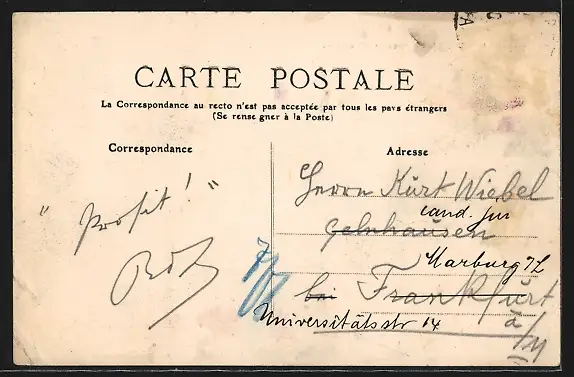 CARTE POSTALE
La Correspondance au recto n'est pas acceptée par tous les pays étrangers
(Se rense gner à la Poste)
Correspondance
Adresse
"Prosit!"
Herrn Kurt Wiebel
cand. jur
Gelnhausen
Marburg 7/L
bei Frankfurt
a/M
Universitätsstr 14